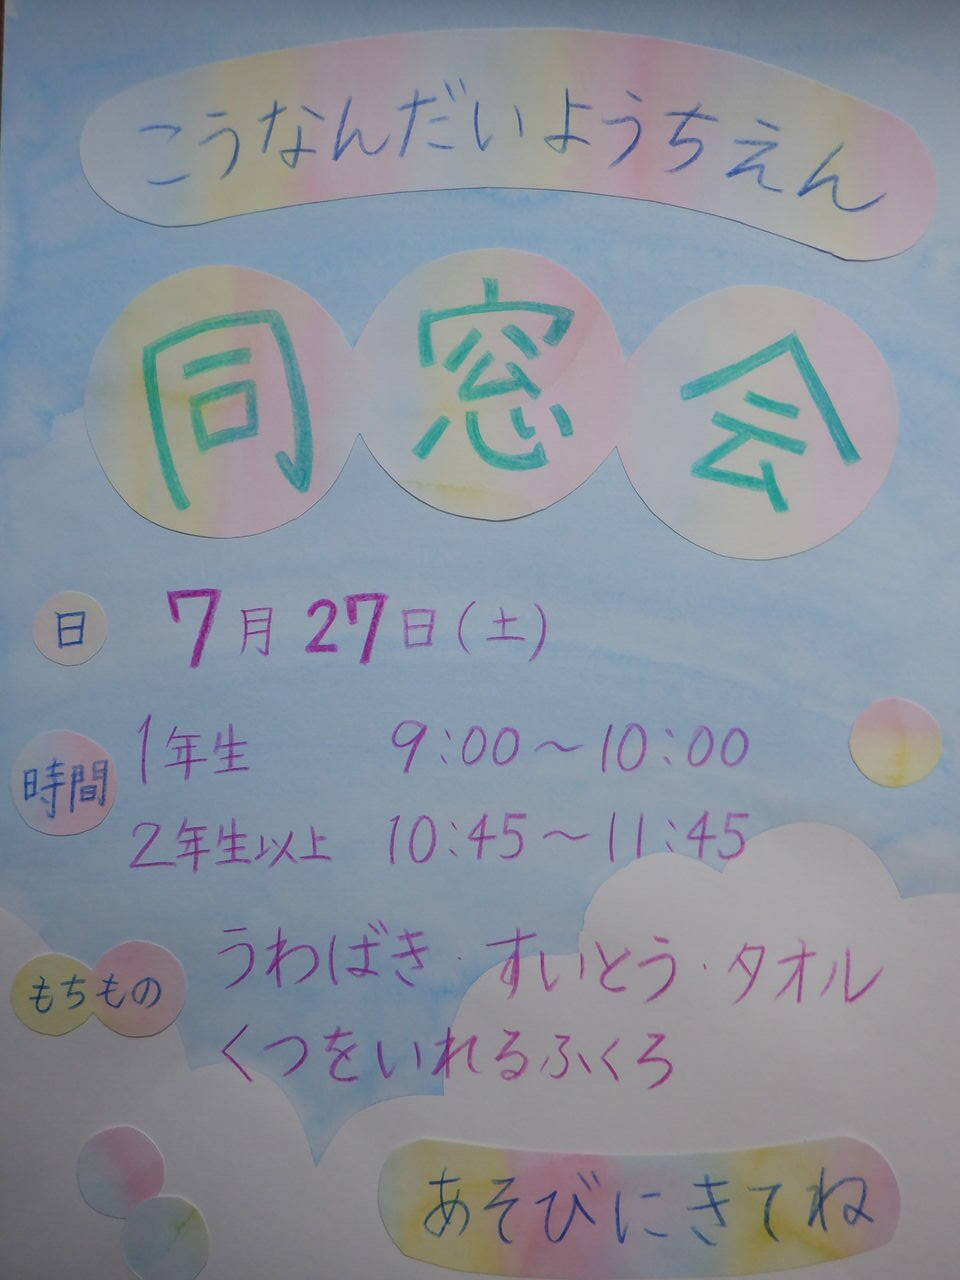 こうなんだいようちえん
同窓会
日 7月27日(土)
時間 1年生 9:00～10:00
2年生以上 10:45～11:45
もちもの うわばき・すいとう・タオル
くつをいれるふくろ
あそびにきてね